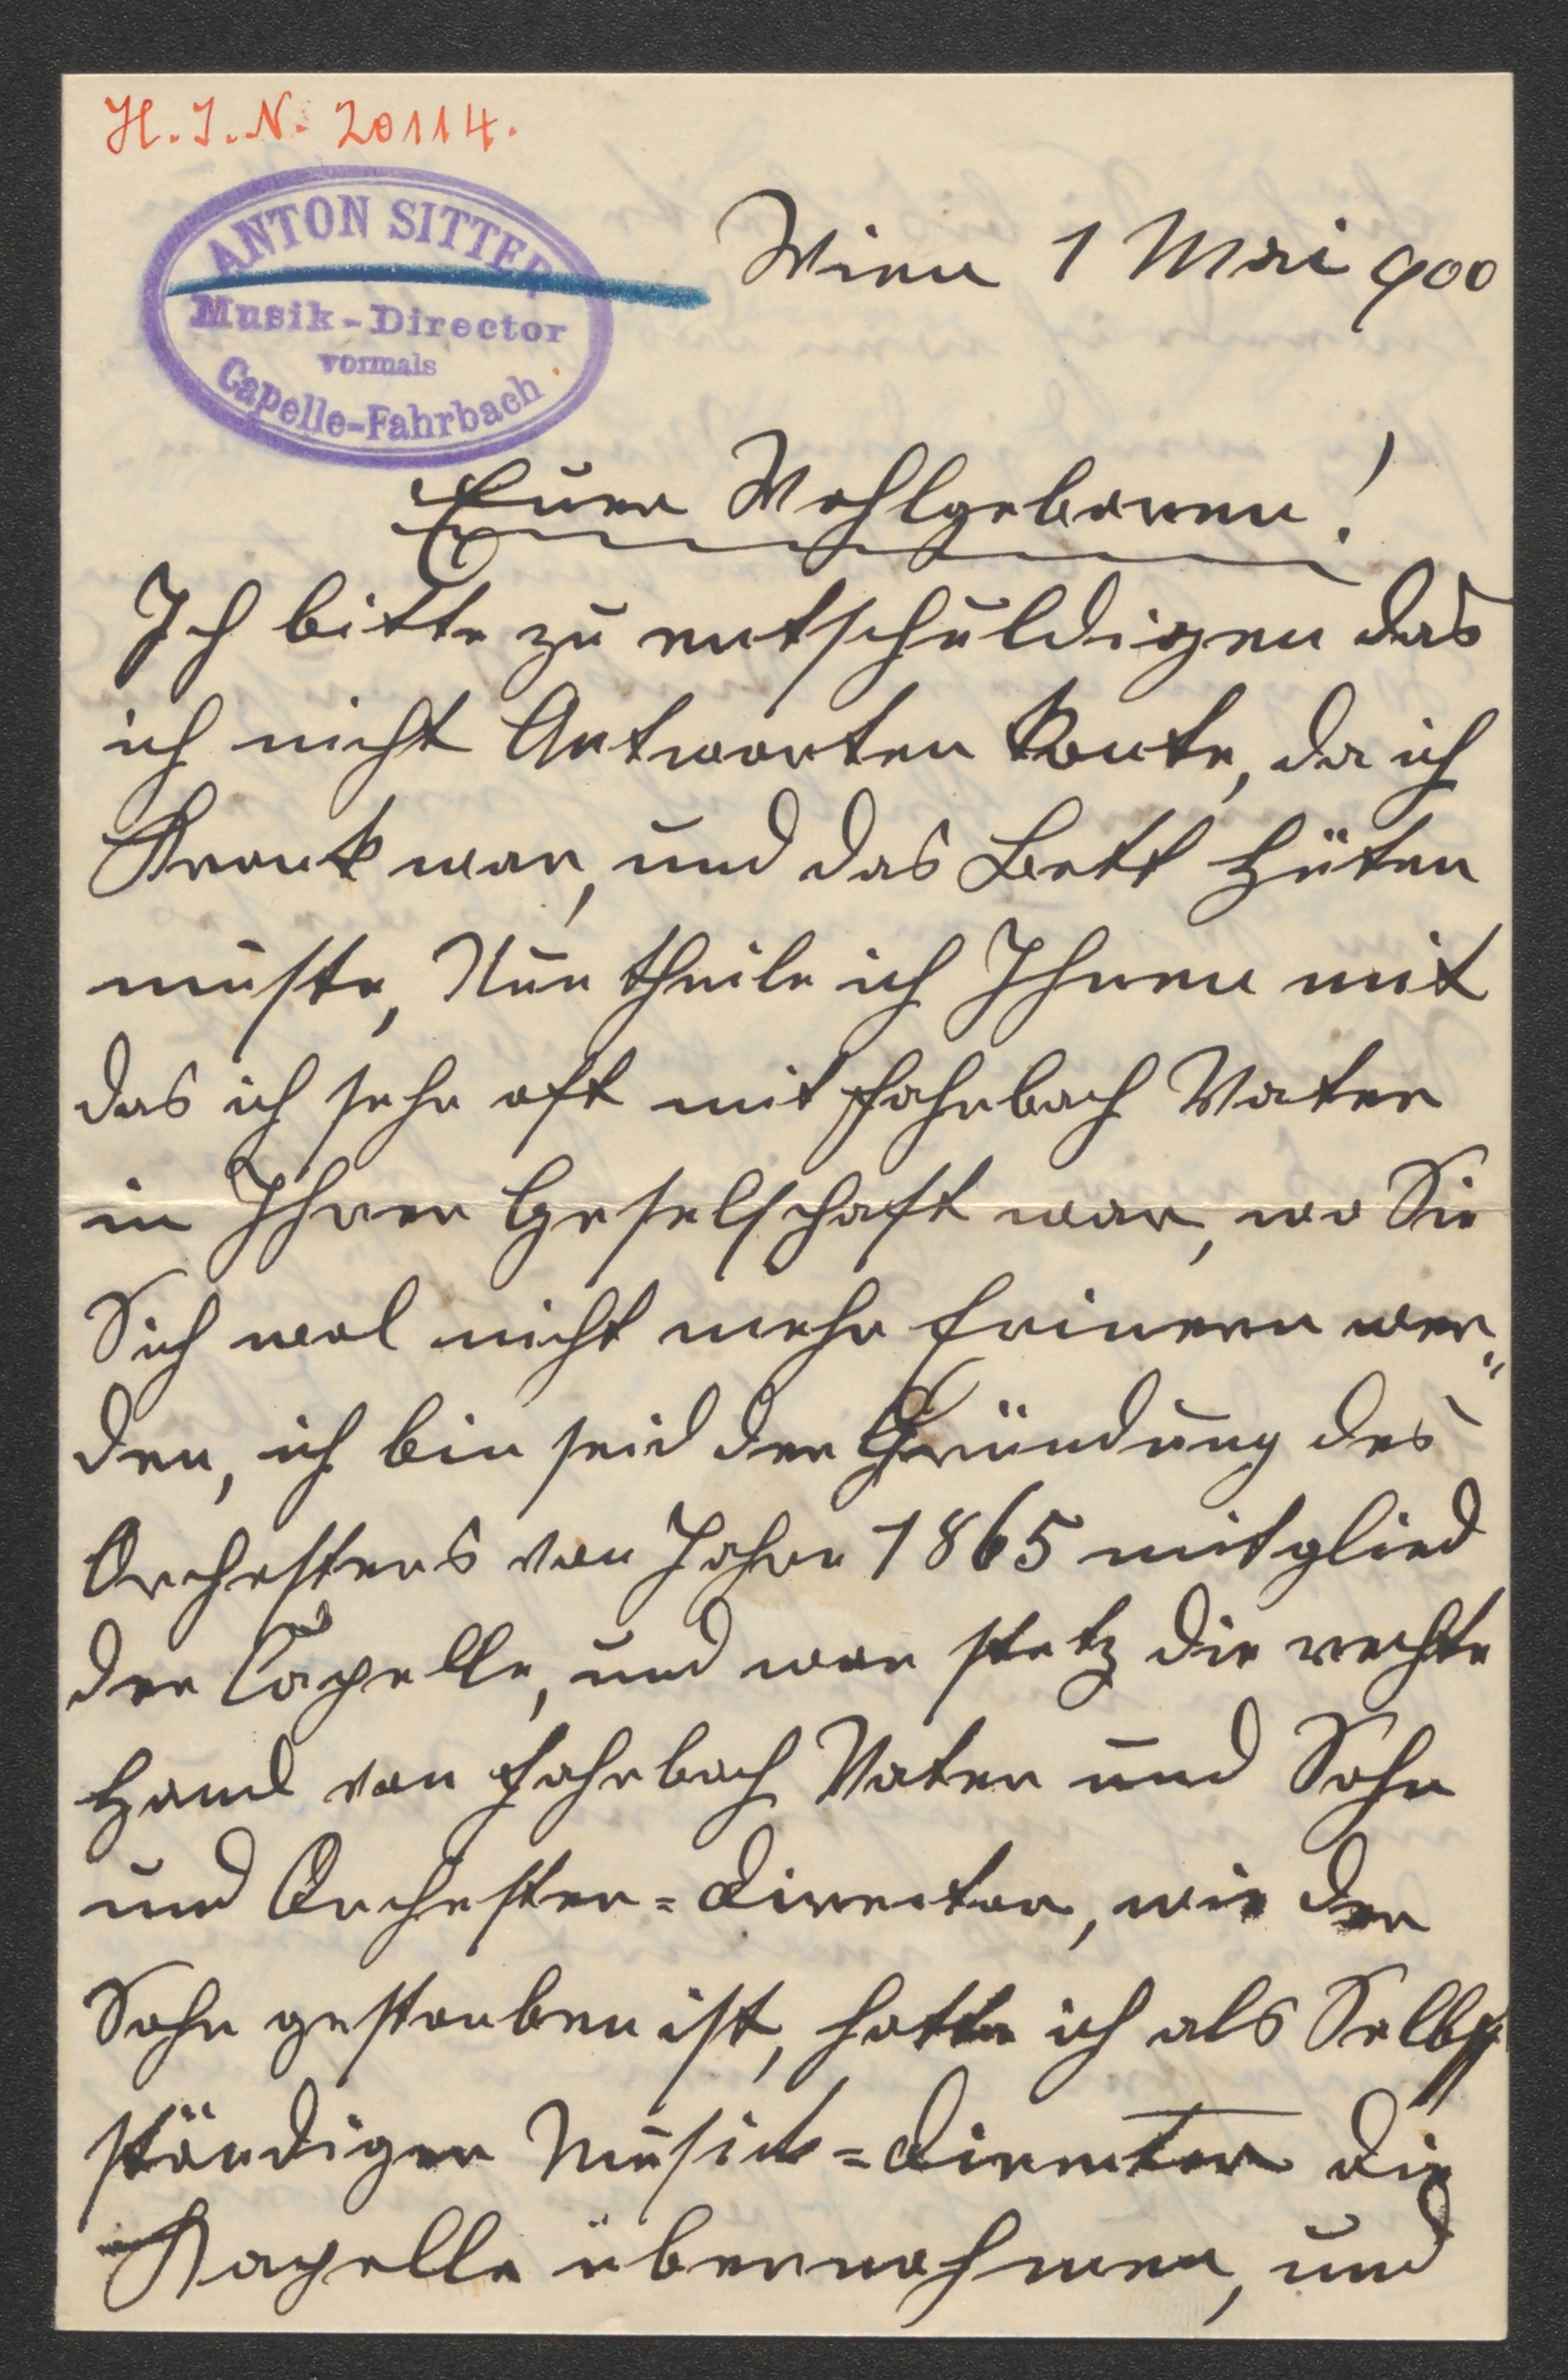 H. I. N. 20114.
ANTON SITTER
Musik-Director
vormals
Capelle-Fahrbach
Wien 1 Mai 900
Euer Wohlgeboren!
Ich bitte zu entschuldigen das
ich nicht Antworten konte, da ich
Krank war, und das Bett hüten
muste, Nun theile ich Ihnen mit
das ich sehr oft mit Fahrbach Vater
in Ihrer Geselschaft war, wo Sie
Sich wol nicht mehr Erinern wer„
den, ich bin seid der Gründung des
Orchesters von Jahre 1865 mitglied
der Capelle, und war stetz die rechte
Hand von Fahrbach Vater und Sohn
und Orchester=Director, wie der
Sohn gestorben ist, hatte ich als Selbst
ständiger Musick=Director die
Kapelle übernohmen, und